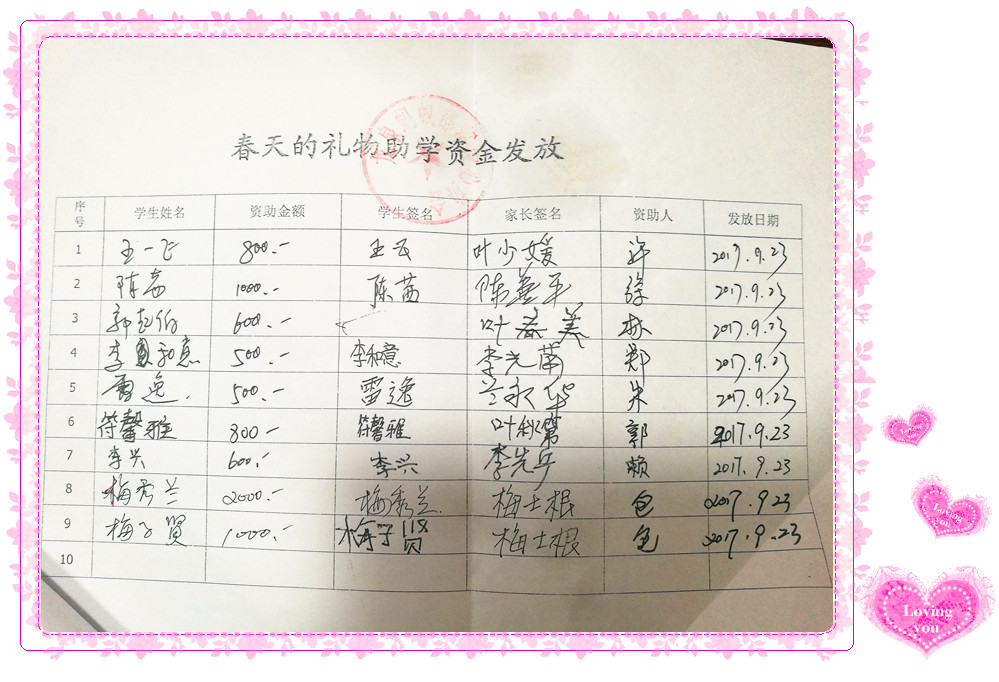 春天的礼物助学资金发放
序号 学生姓名 资助金额 学生签名 家长签名 资助人 发放日期
1 王一飞 800.- 王飞 叶少媛 许 2017.9.23
2 陈茜 1000.- 陈茜 陈 平 徐 2017.9.23
3 郭 伯 600.- 叶春美 林 2017.9.23
4 李和意 500.- 李和意 李光莆 郑 2017.9.23
5 雷逸 500.- 雷逸 兰永华 朱 2017.9.23
6 符馨雅 800- 符馨雅 叶秋 郭 2017.9.23
7 李兴 600.- 李兴 李先平 赖 2017.9.23
8 梅秀兰 2000.- 梅秀兰 梅士根 包 2017.9 23
9 梅子贤 1000.- 梅子贤 梅士根 包 2017.9.23
10
Loving you
Loving you